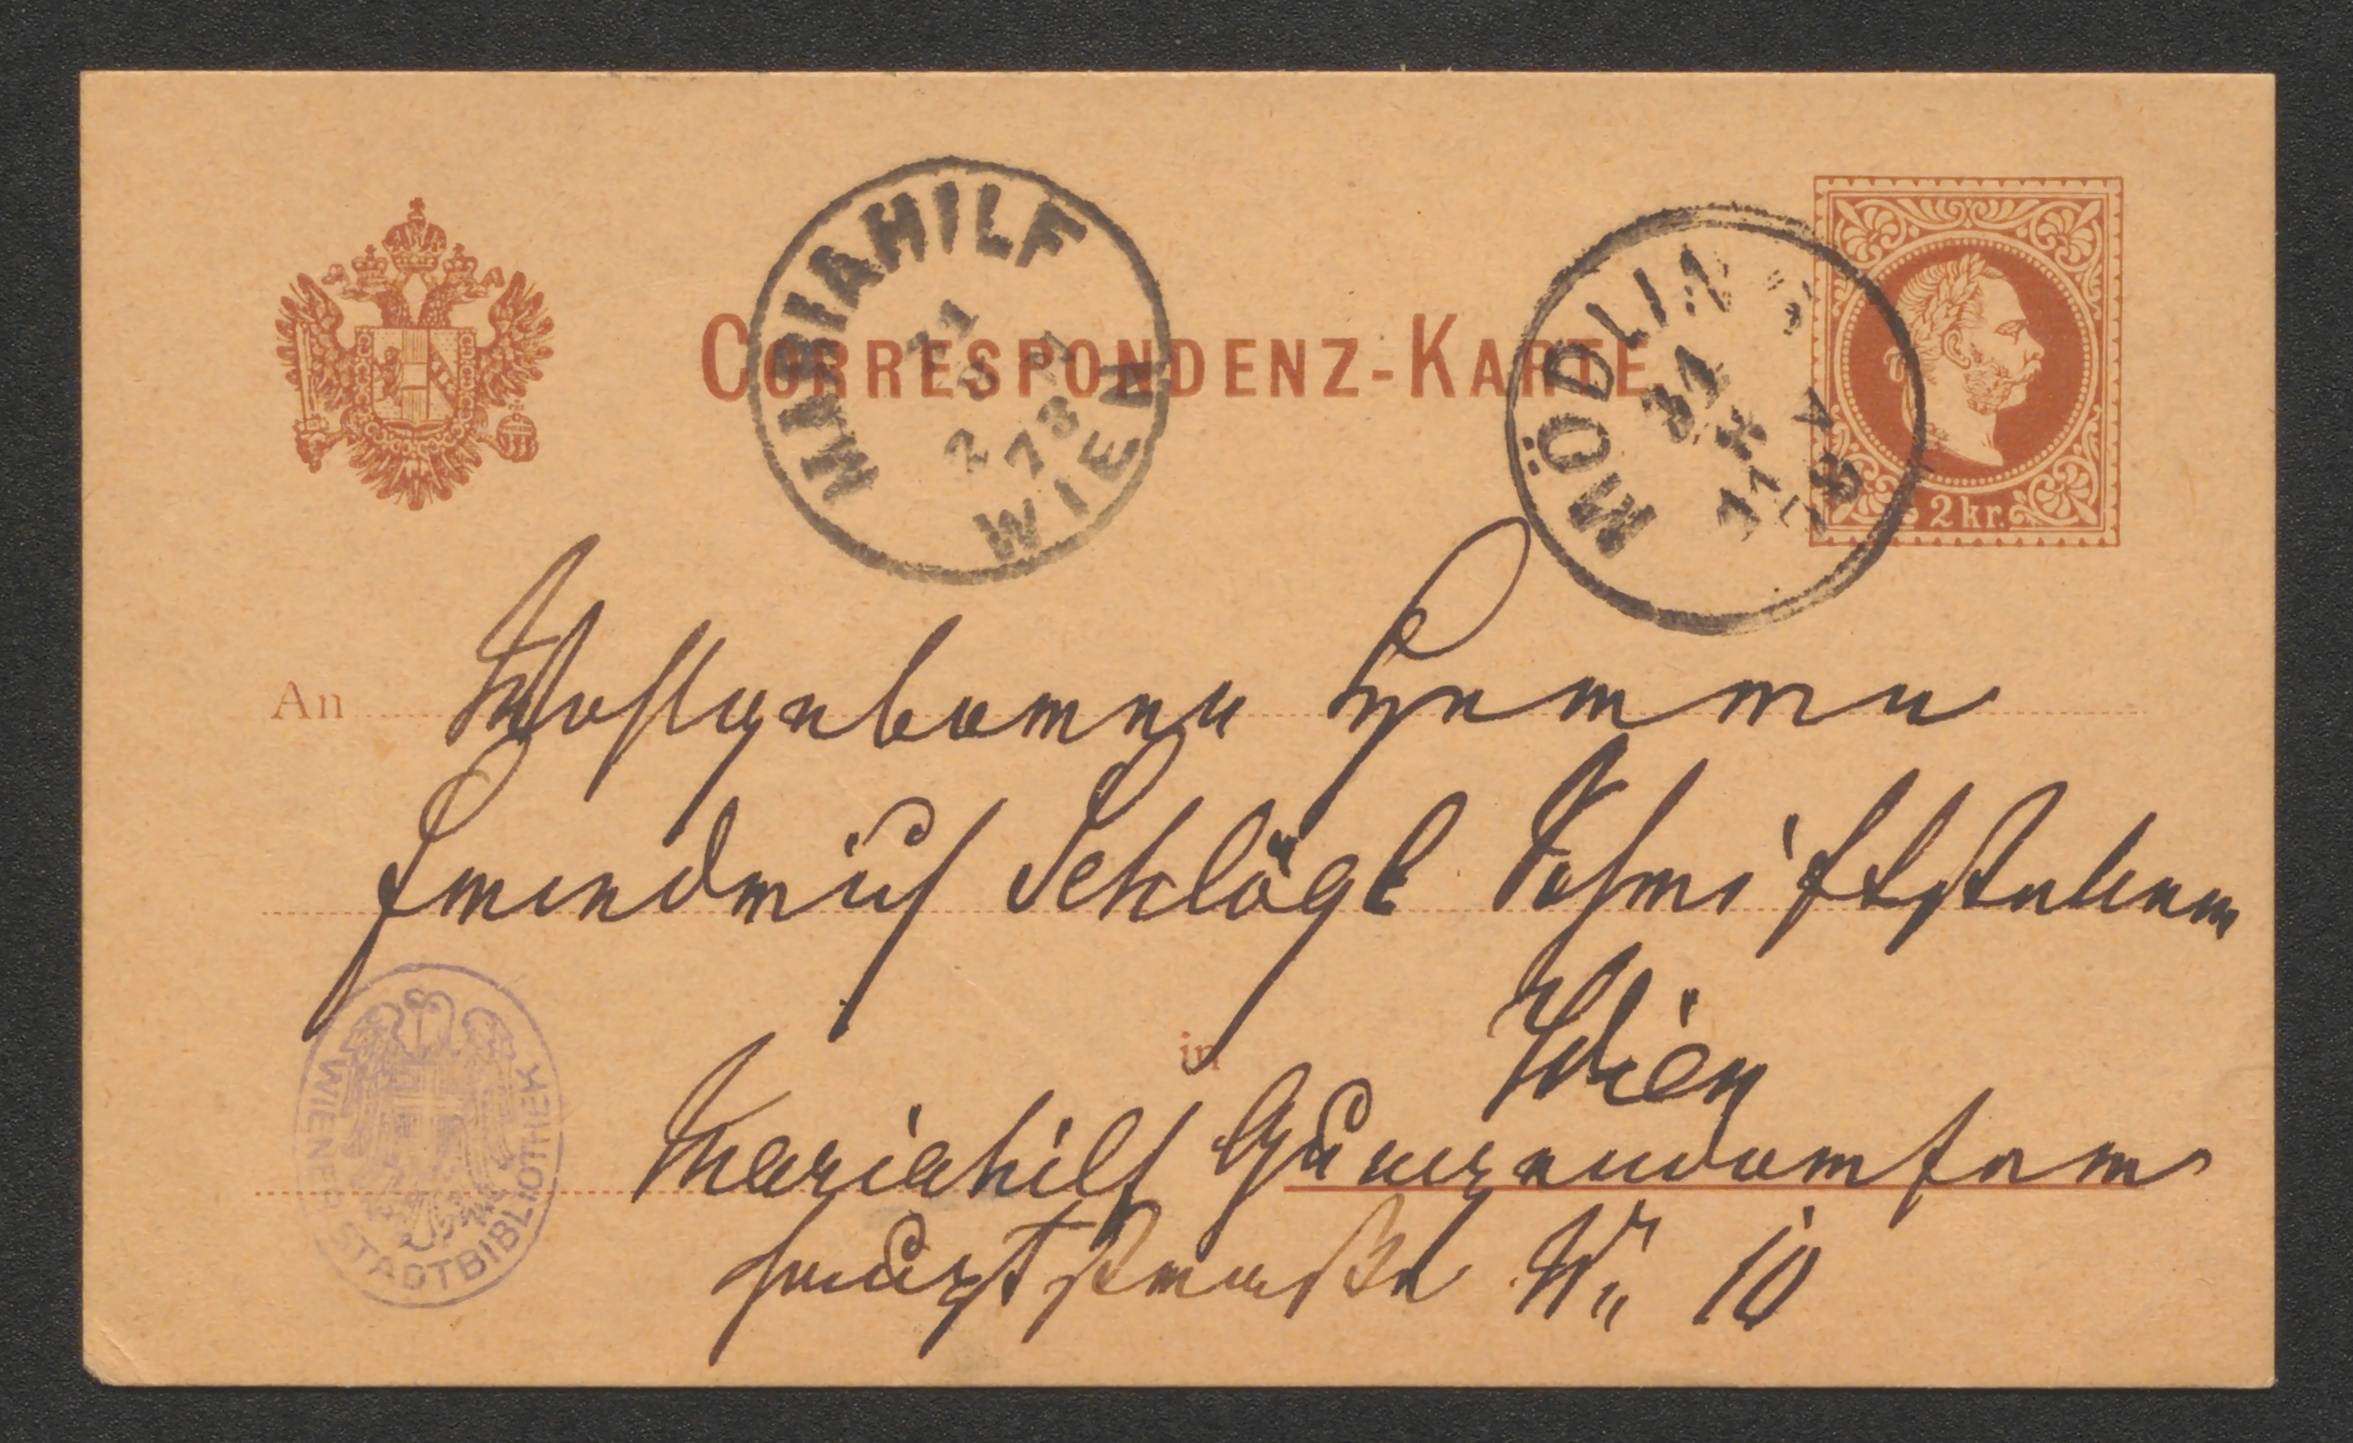 CORRESPONDENZ-KARTE
MARIAHILF
WIEN
78
MÖDLIN
31
78
2 kr.
An Wohlgeboren Herrn
Friedrich Schlögl Schriftsteller
in Wien
Mariahilf Gumpendorfer
hauptstraße Nr. 10
WIENER STADTBIBLIOTHEK